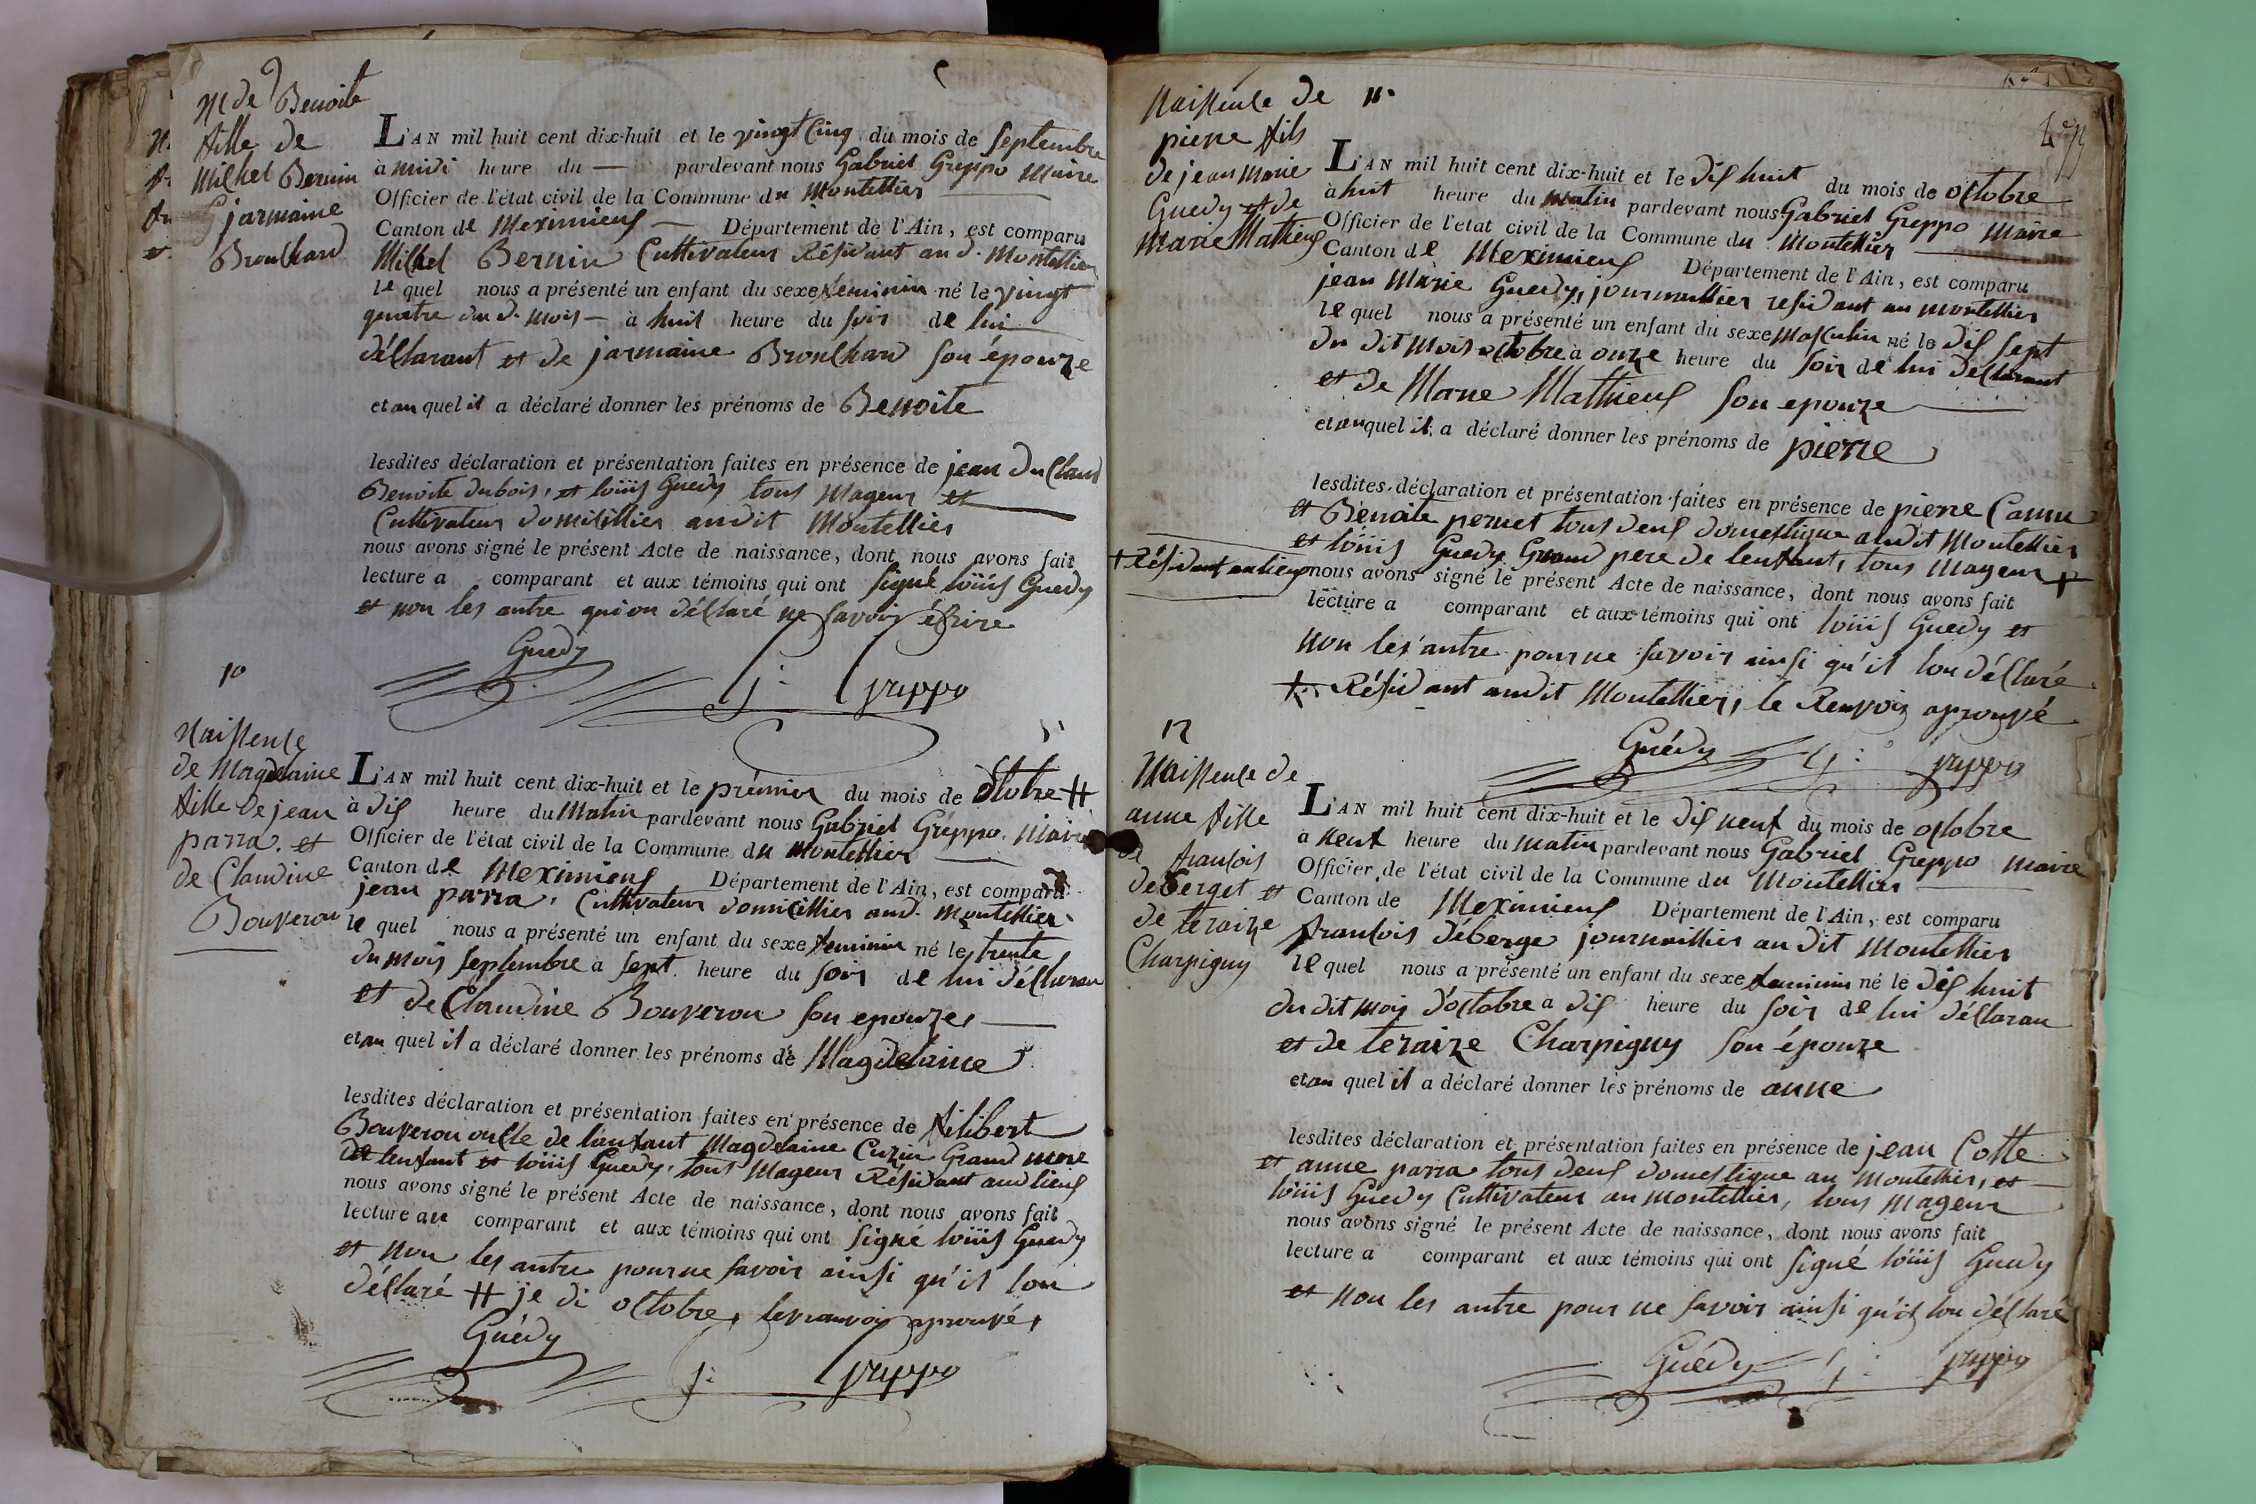 N de Benoite
fille de
Milhel Bernin
G jarmaine
Broulhard
L'AN mil huit cent dix-huit et le vingt Cinq du mois de Septembre
à midi heure du — pardevant nous Gabriel Greppo Maire
Officier de l'état civil de la Commune du Montellier
Canton de Meximieux — Département de l'Ain, est comparu
Milhel Bernin Cultivateur Résidant aud. Montellier
le quel nous a présenté un enfant du sexe féminin né le vingt
quatre dud. mois — à huit heure du soir de lui
déClarant et de jarmaine Broulhard son épouze
et au quel il a déclaré donner les prénoms de Benoite
lesdites déclaration et présentation faites en présence de jean duClaud
Benoite dubois, et loüis Guedy tous Mageur et
Cultivateur domicillier audit Montellier
nous avons signé le présent Acte de naissance, dont nous avons fait
lecture a comparant et aux témoins qui ont signé loüis Guedy
et non les autre qui on déClaré ne savoir éCrire
Guedy G: Greppo
10
Naissence
de Magdelaine
fille de jean
parra. et
de Claudine
Bouveron
L'AN mil huit cent dix-huit et le prémier du mois de Octobre #
à dix heure du Matin pardevant nous Gabriel Gréppo. Maire
Officier de l'état civil de la Commune du Montellier
Canton de Meximieux Département de l'Ain, est comparu
jean parra, Cultivateur domicillier aud. Montellier
le quel nous a présenté un enfant du sexe feminin né le trente
du mois Septembre à Sept heure du soir de lui déClaran
et de Claudine Bouveron son epouze,
et au quel il a déclaré donner les prénoms de Magdelaine
lesdites déclaration et présentation faites en présence de filibert
Bouveron onCle de lanfant Magdelaine Cuzin Grand mere
de lenfant et loüis Guedy, tous Mageur Résidant aud lieux
nous avons signé le présent Acte de naissance, dont nous avons fait
lecture au comparant et aux témoins qui ont signé loüis Guedy
et non les autre pour ne savoir ainsi qu'il lon
déClaré # je di octobre, le ranvois aprouvé,
Guédy G: Greppo
Naissence de 11.
pierre fils
de jean Marie
Guedy et de
Marie Mathieux
L'AN mil huit cent dix-huit et le dix huit du mois de octobre
à huit heure du Matin pardevant nous Gabriel Greppo Maire
Officier de l'état civil de la Commune du Montellier
Canton de Meximieux Département de l'Ain, est comparu
jean Marie Guedy, journallier residant au montellier
le quel nous a présenté un enfant du sexe Masculin né le dix sept
du dit mois octobre à onze heure du soir de lui déClarant
et de Marie Mathieux son epouze
et au quel il a déclaré donner les prénoms de pierre
lesdites déclaration et présentation faites en présence de pierre
et Benoite pernet tous deux domestique audit Montellier
et loüis Guedy Grand pere de lenfant, tous Mageur +
+ Résidant au lieux
nous avons signé le présent Acte de naissance, dont nous avons fait
lecture a comparant et aux témoins qui ont loüis Guedy et
non les autre pour ne savoir ainsi qu'il lon déClaré
+ Résidant audit Montellier, le Renvois aprouvé
Guédy G: Greppo
12
Naissence de
anne fille
de franlois
deberget et
de teraize
Charpigny
L'AN mil huit cent dix-huit et le dix neuf du mois de octobre
à neuf heure du matin pardevant nous Gabriel Greppo Maire
Officier de l'état civil de la Commune du Montellier
Canton de Meximieux Département de l'Ain, est comparu
franlois déberge journallier au dit Montellier
le quel nous a présenté un enfant du sexe faminin né le dix huit
du dit mois d'octobre à dix heure du soir de lui déClaran
et de teraize Charpigny son épouze
et au quel il a déclaré donner les prénoms de anne
lesdites déclaration et présentation faites en présence de jean Cotte
et anne parra tous deux domestique au Montellier, et
loüis Guedy Cultivateur au montellier, tous mageur
nous avons signé le présent Acte de naissance, dont nous avons fait
lecture a comparant et aux témoins qui ont signé loüis Guedy
et non les autre pour ne savoir ainsi qu'il lon déClaré
Guédy G: Greppo